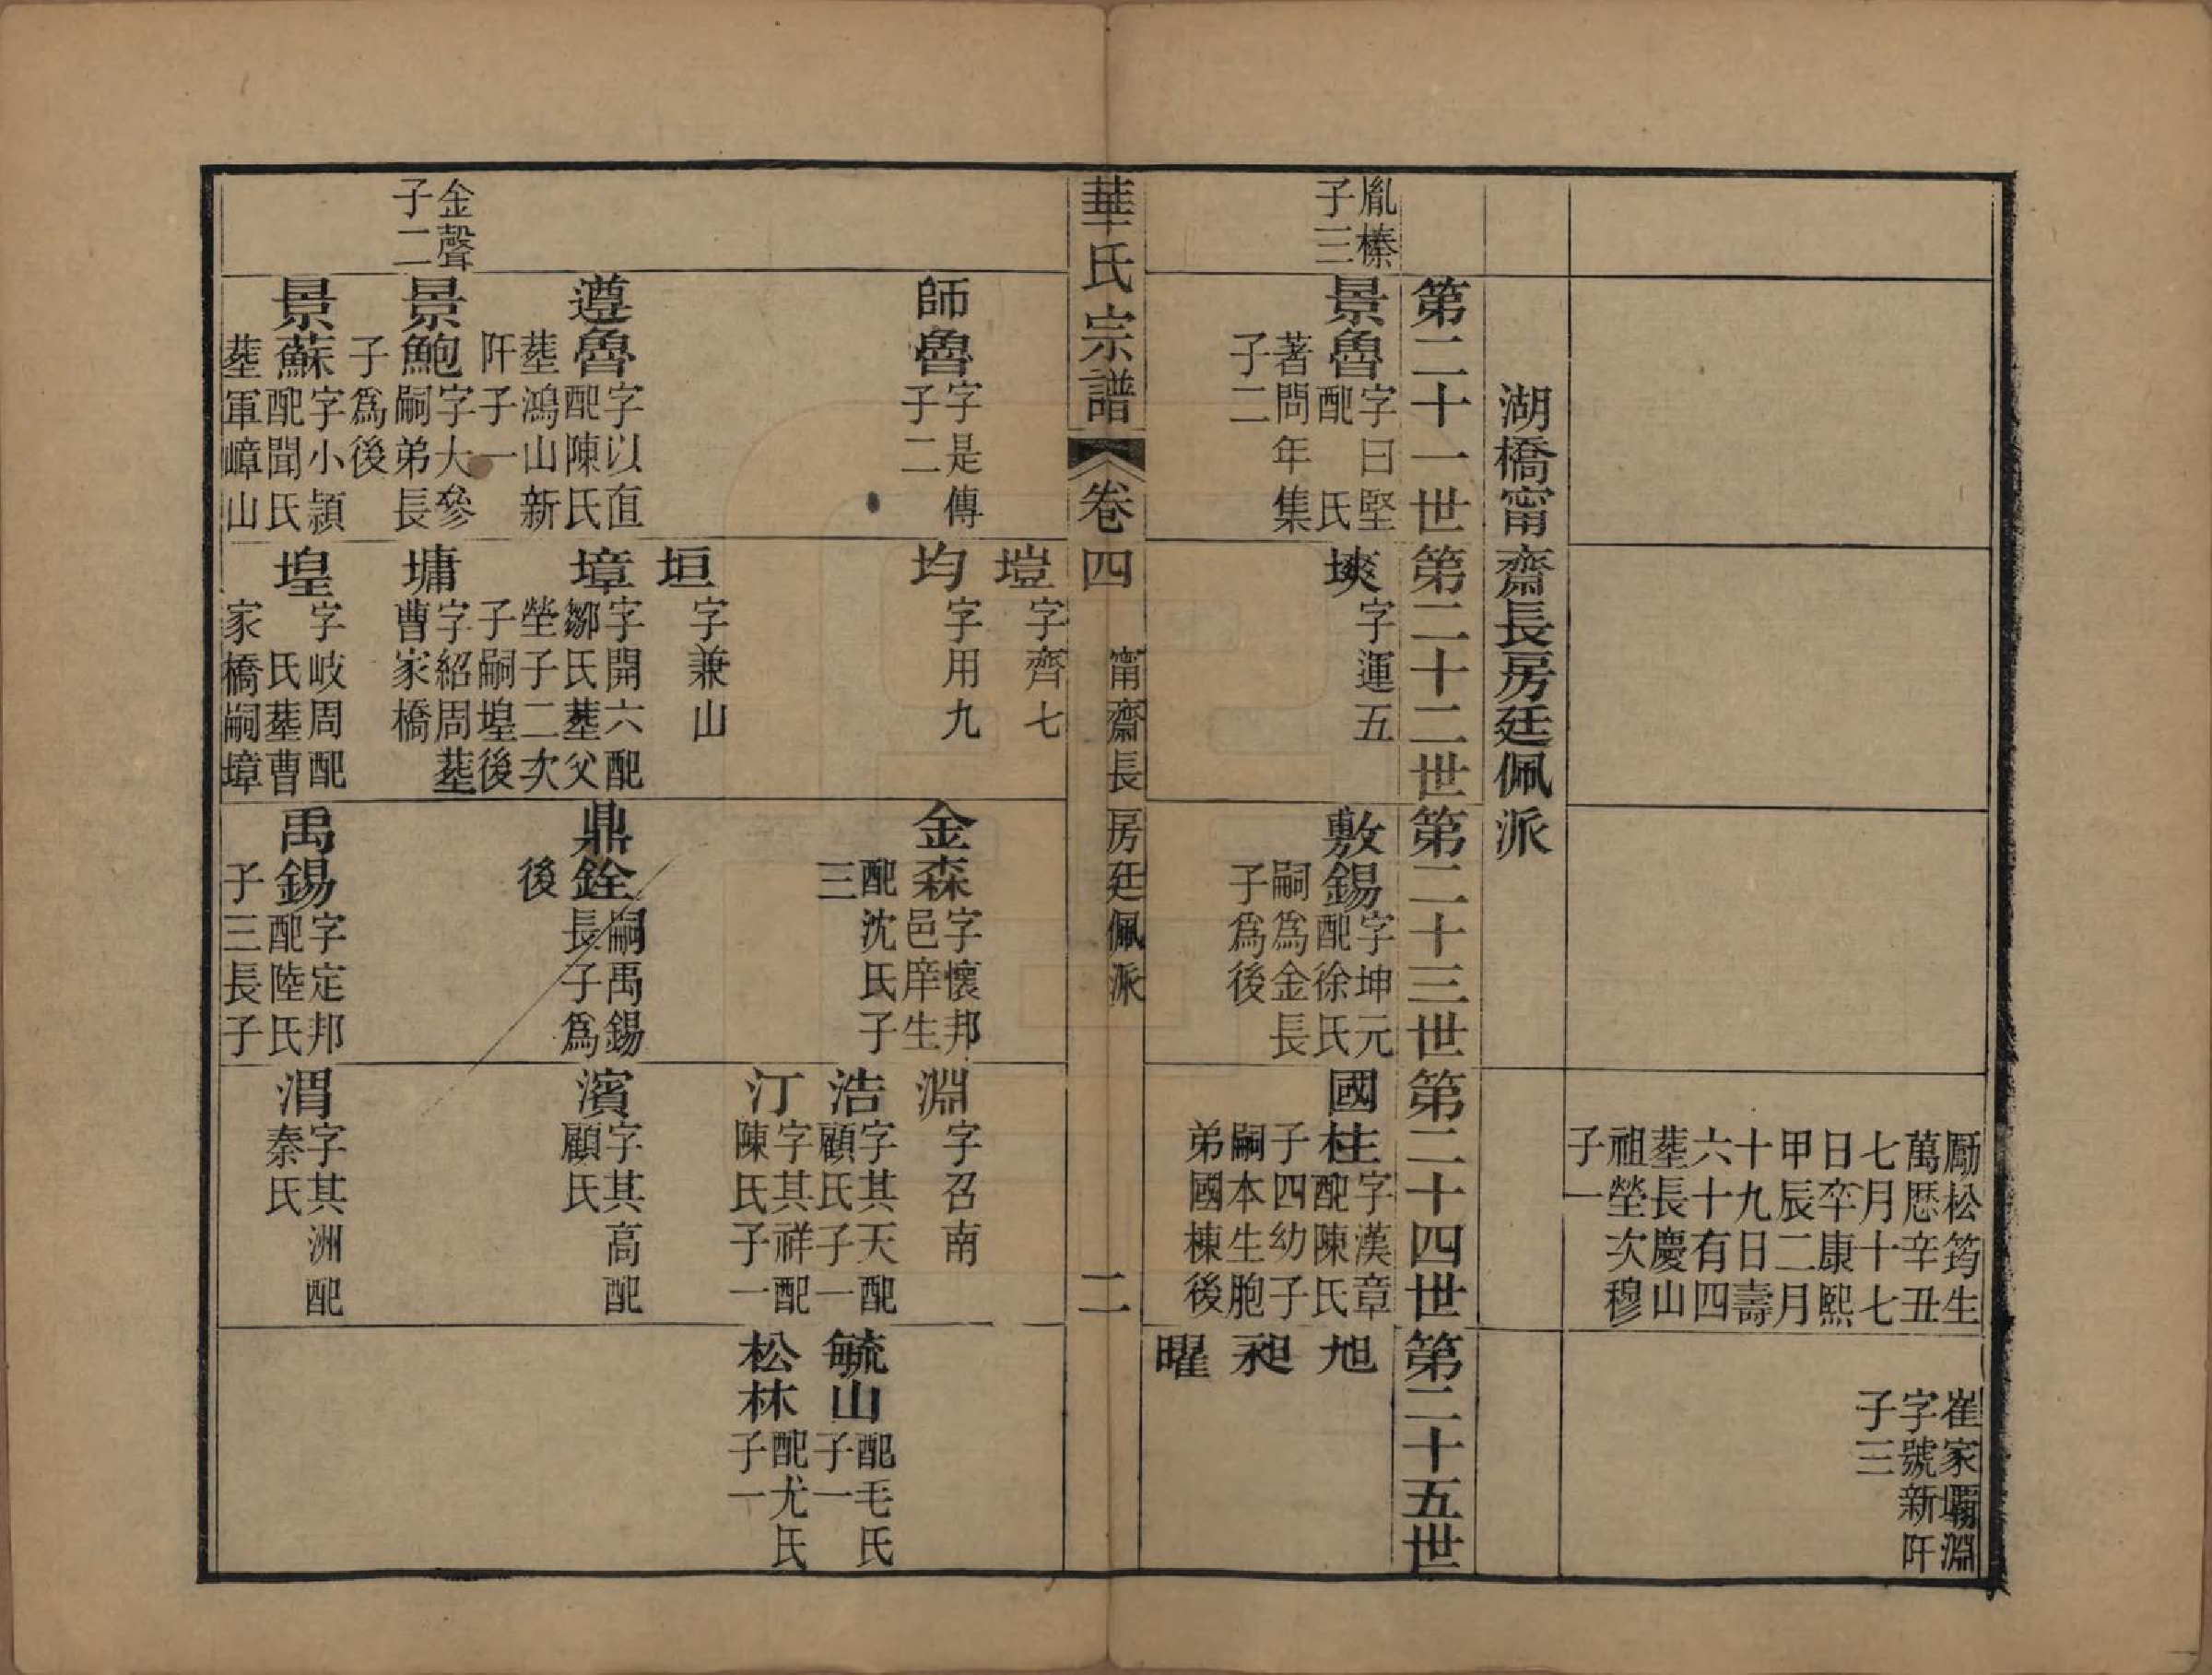 勵松筠生
萬厯辛丑
七月十七
日卒康熙
甲辰二月
十九日壽
六十有四
塟長慶山
祖塋次穆
子一
崔家壩淵
字號新阡
子三
湖橋甯齋長房廷佩派
第二十一世
第二十二世
第二十三世
第二十四世
第二十五世
胤榛
子三
景魯
字曰堅
配 氏
著問年集
子二
塽
字運五
敷錫
字坤元
配徐氏
嗣為金長
子為後
國柱
字漢章
配陳氏
子四幼子
嗣本生胞
弟國棟後
旭
昶
曜
華氏宗譜
卷四
甯齋長房廷佩派
二
塏
字齊七
師魯
字是傳
子二
均
字用九
金森
字懷邦
邑庠生
配沈氏子
三
淵
字召南
浩
字其天配
顧氏子一
毓山
配毛氏
子一
汀
字其祥配
陳氏子一
松林
配尤氏
子一
垣
字兼山
遵魯
字以直
配陳氏
塟鴻山新
阡子一
墇
字開六配
鄒氏塟父
塋子二次
子嗣堭後
鼎銓
嗣禹錫
長子為
後
濱
字其高配
顧氏
金聲
子二
景鮑
字大參
嗣弟長
子為後
墉
字紹周塟
曹家橋
景蘇
字小頴
配聞氏
塟軍嶂山
堭
字岐周配
氏塟曹
家橋嗣墇
禹錫
字定邦
配陸氏
子三長子
渭
字其洲配
秦氏